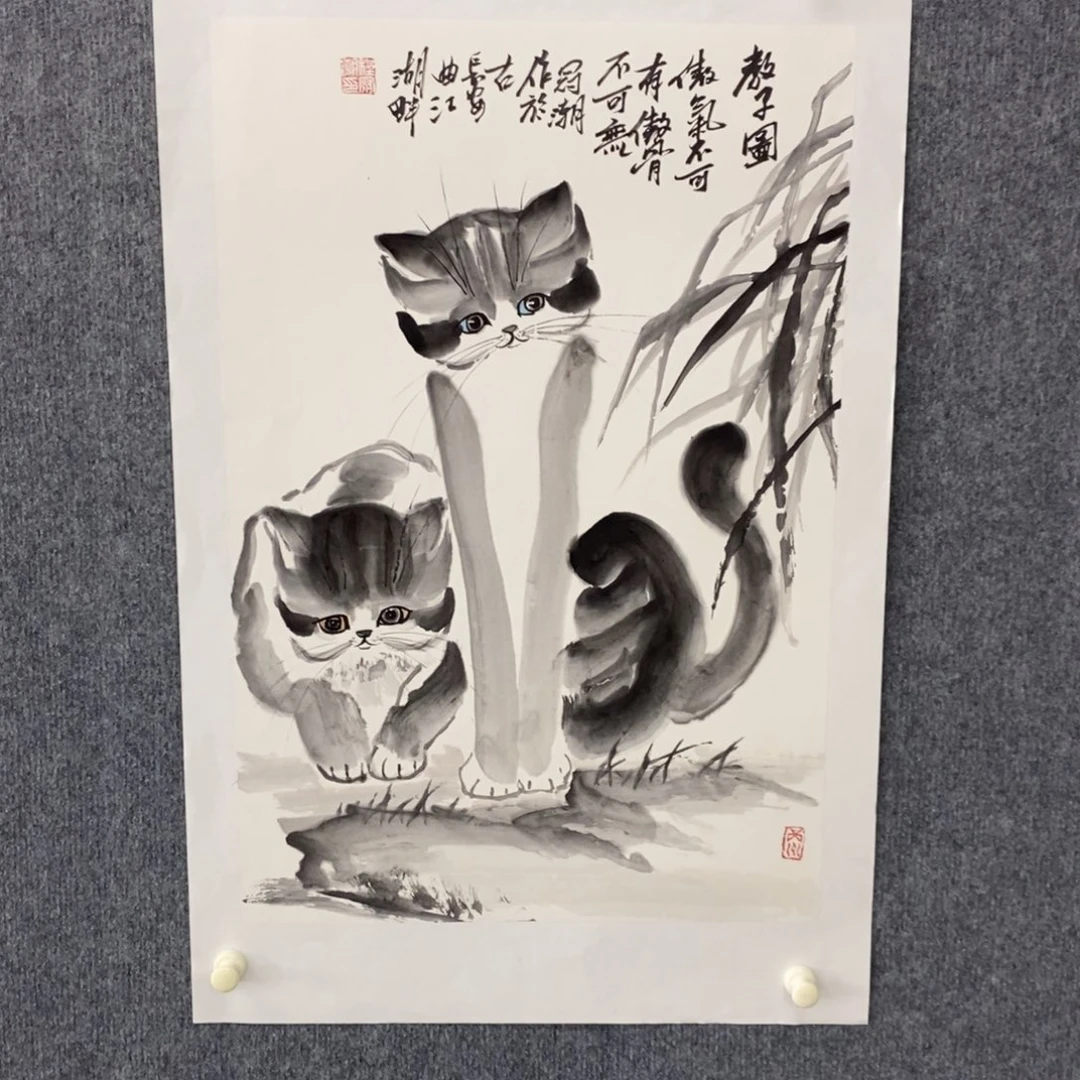 教子圖
傲氣不可
有傲骨
不可無
冠潮
作於
古
長安
曲江
湖畔